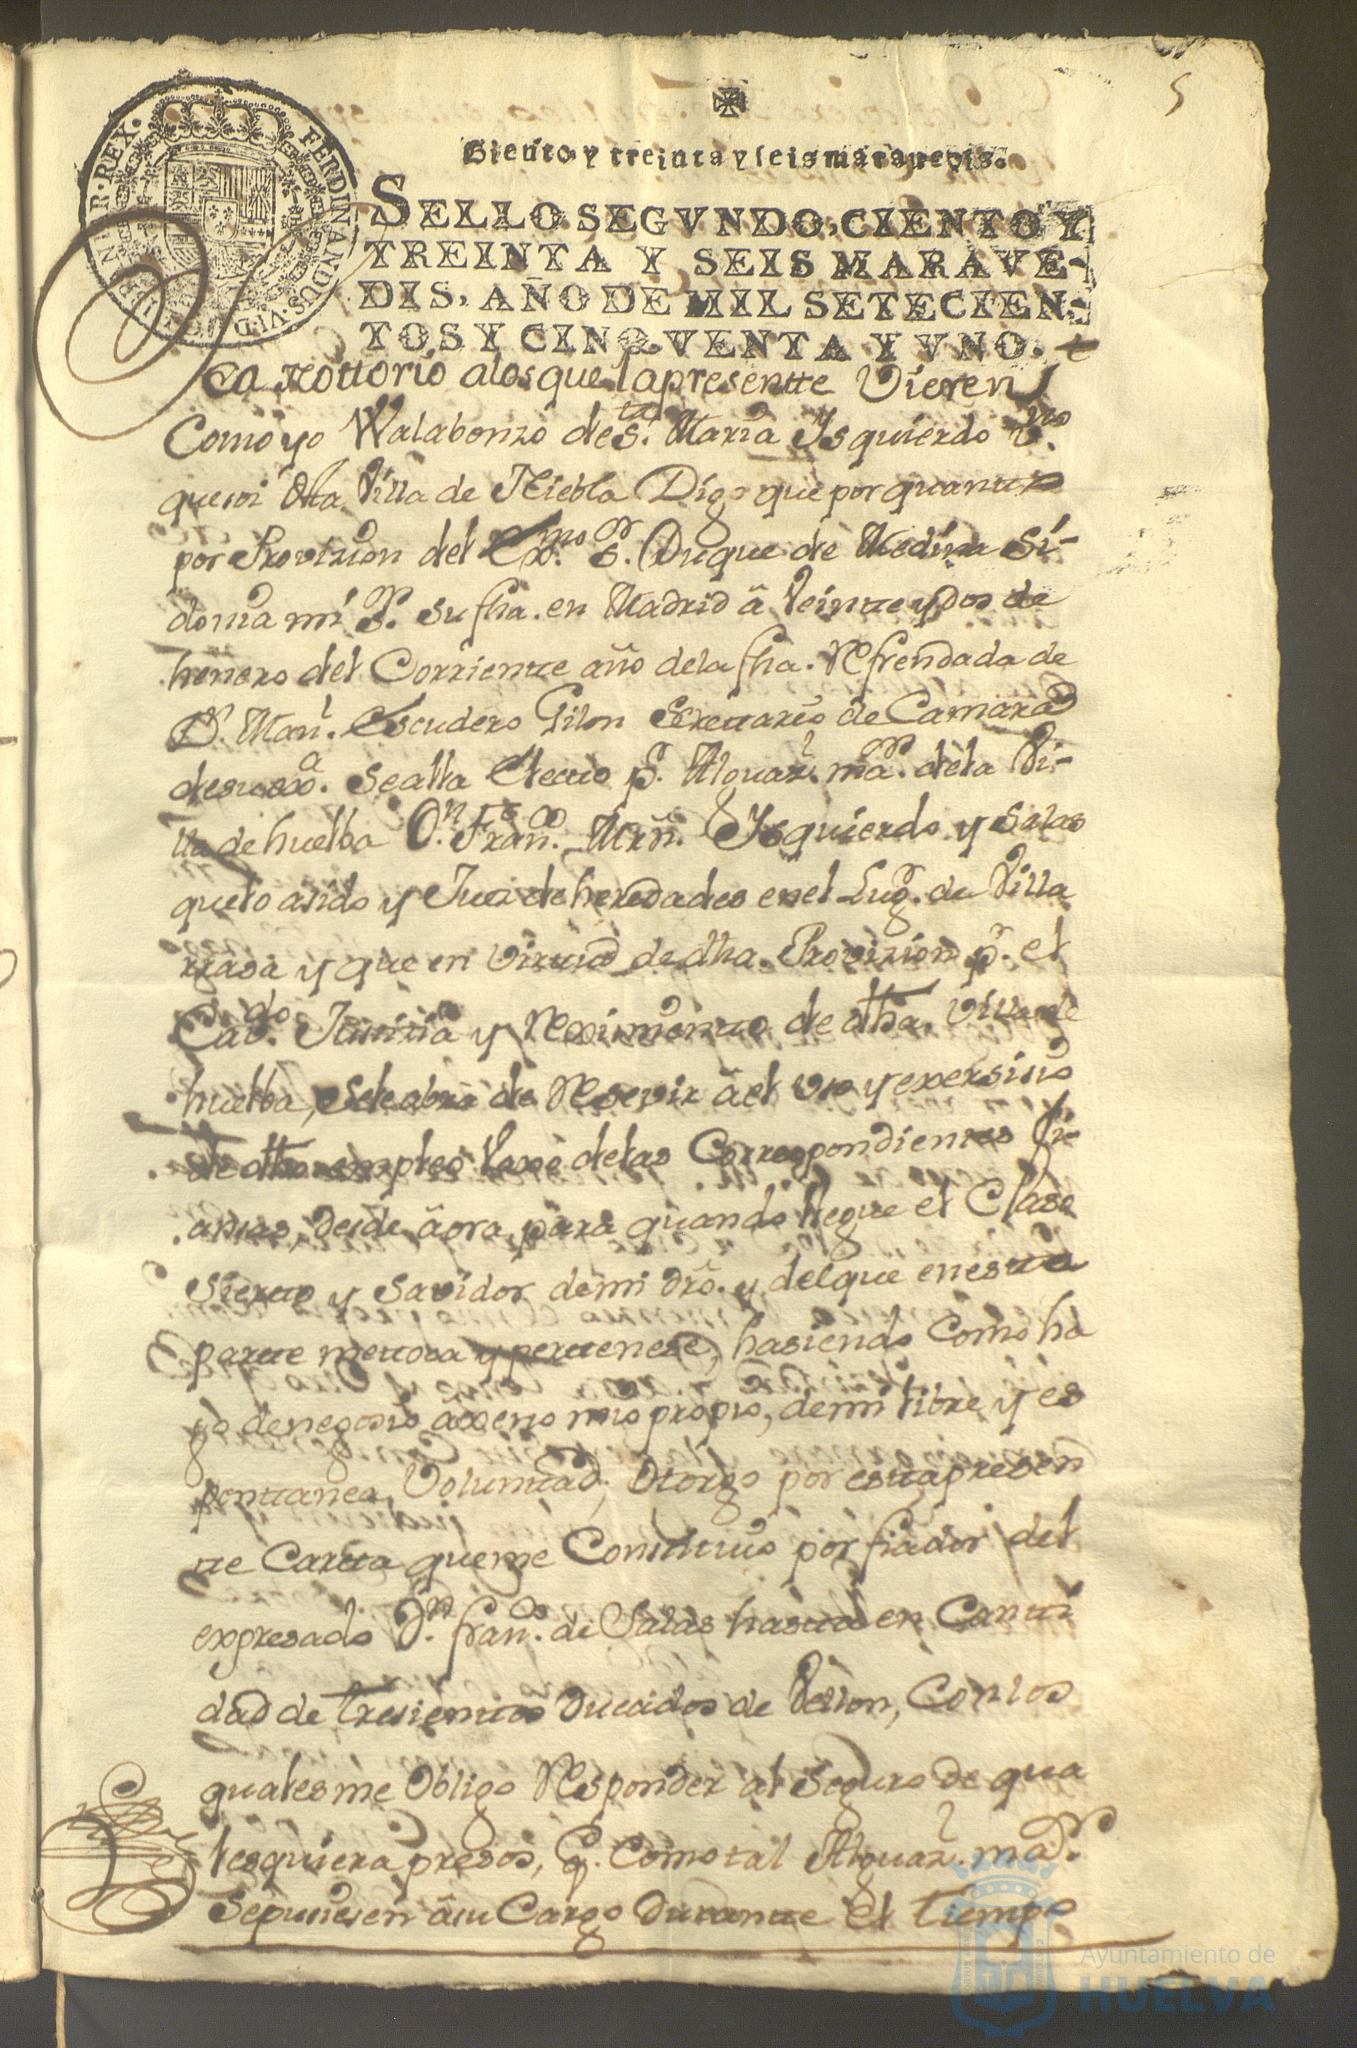 5
Siento y treinta y seis maravedis.
SELLO SEGVNDO, CIENTO Y
TREINTA Y SEIS MARAVE-
DIS, AÑO DE MIL SETECIEN-
TOS Y CINQVENTA Y VNO.
FERDINANDUS VI D G HISPANIAR REX
Sea nottorio a los que la presentte Vieren
Como yo Walabonzo de sta. Maria Ysquierdo Vno.
que soi dtta Villa de Niebla Digo que por quantto
por Provizion del Exmo. Sor. Duque de Medina Si-
donia mi Sor. su fha. en Madrid â Veintte y dos de
henero del Corrientte año de la fha. Refrendada de
Dn. Manl. Escudero Gilon Secrettario de Camara
de su exa. se alla Electto pr. Alguazl. mor. de la Vi-
lla de huelba Dn. Franco. Mrn. Ysquierdo y Salas
que lo a sido y Juez de heredades en el Lugr. de Villa
rrasa y que en Virttud de dha. Provizion pr. el
Cavdo. Justtizia y Reximientto de dtha Villa de
huelba, se le abra de Resevir â el uso y exersisio
de dtho empleo baxo de las Correspondientes fi-
ansas, desde âora para quando llegue el Clase
siertto y savidor de mi dro. y del que en estta
partte me ttoca y perttenese, hasiendo Como ha
go de negosio âxeno mio propio, de mi libre y es
ponttanea Volunttad, Otorgo por estta presen
tte Cartta que me Constituio por fiador del
expresado Dn. franco. de Salas hastta en Cantti
dad de tresienttos Ducados de Vellon, Con los
quales me Obligo Responder al seguro de qua
lesquiera presos, q. Como tal Alguazl. mor.
se pusiesen â su Cargo Durantte el tiempo
Ayuntamiento de
HUELVA